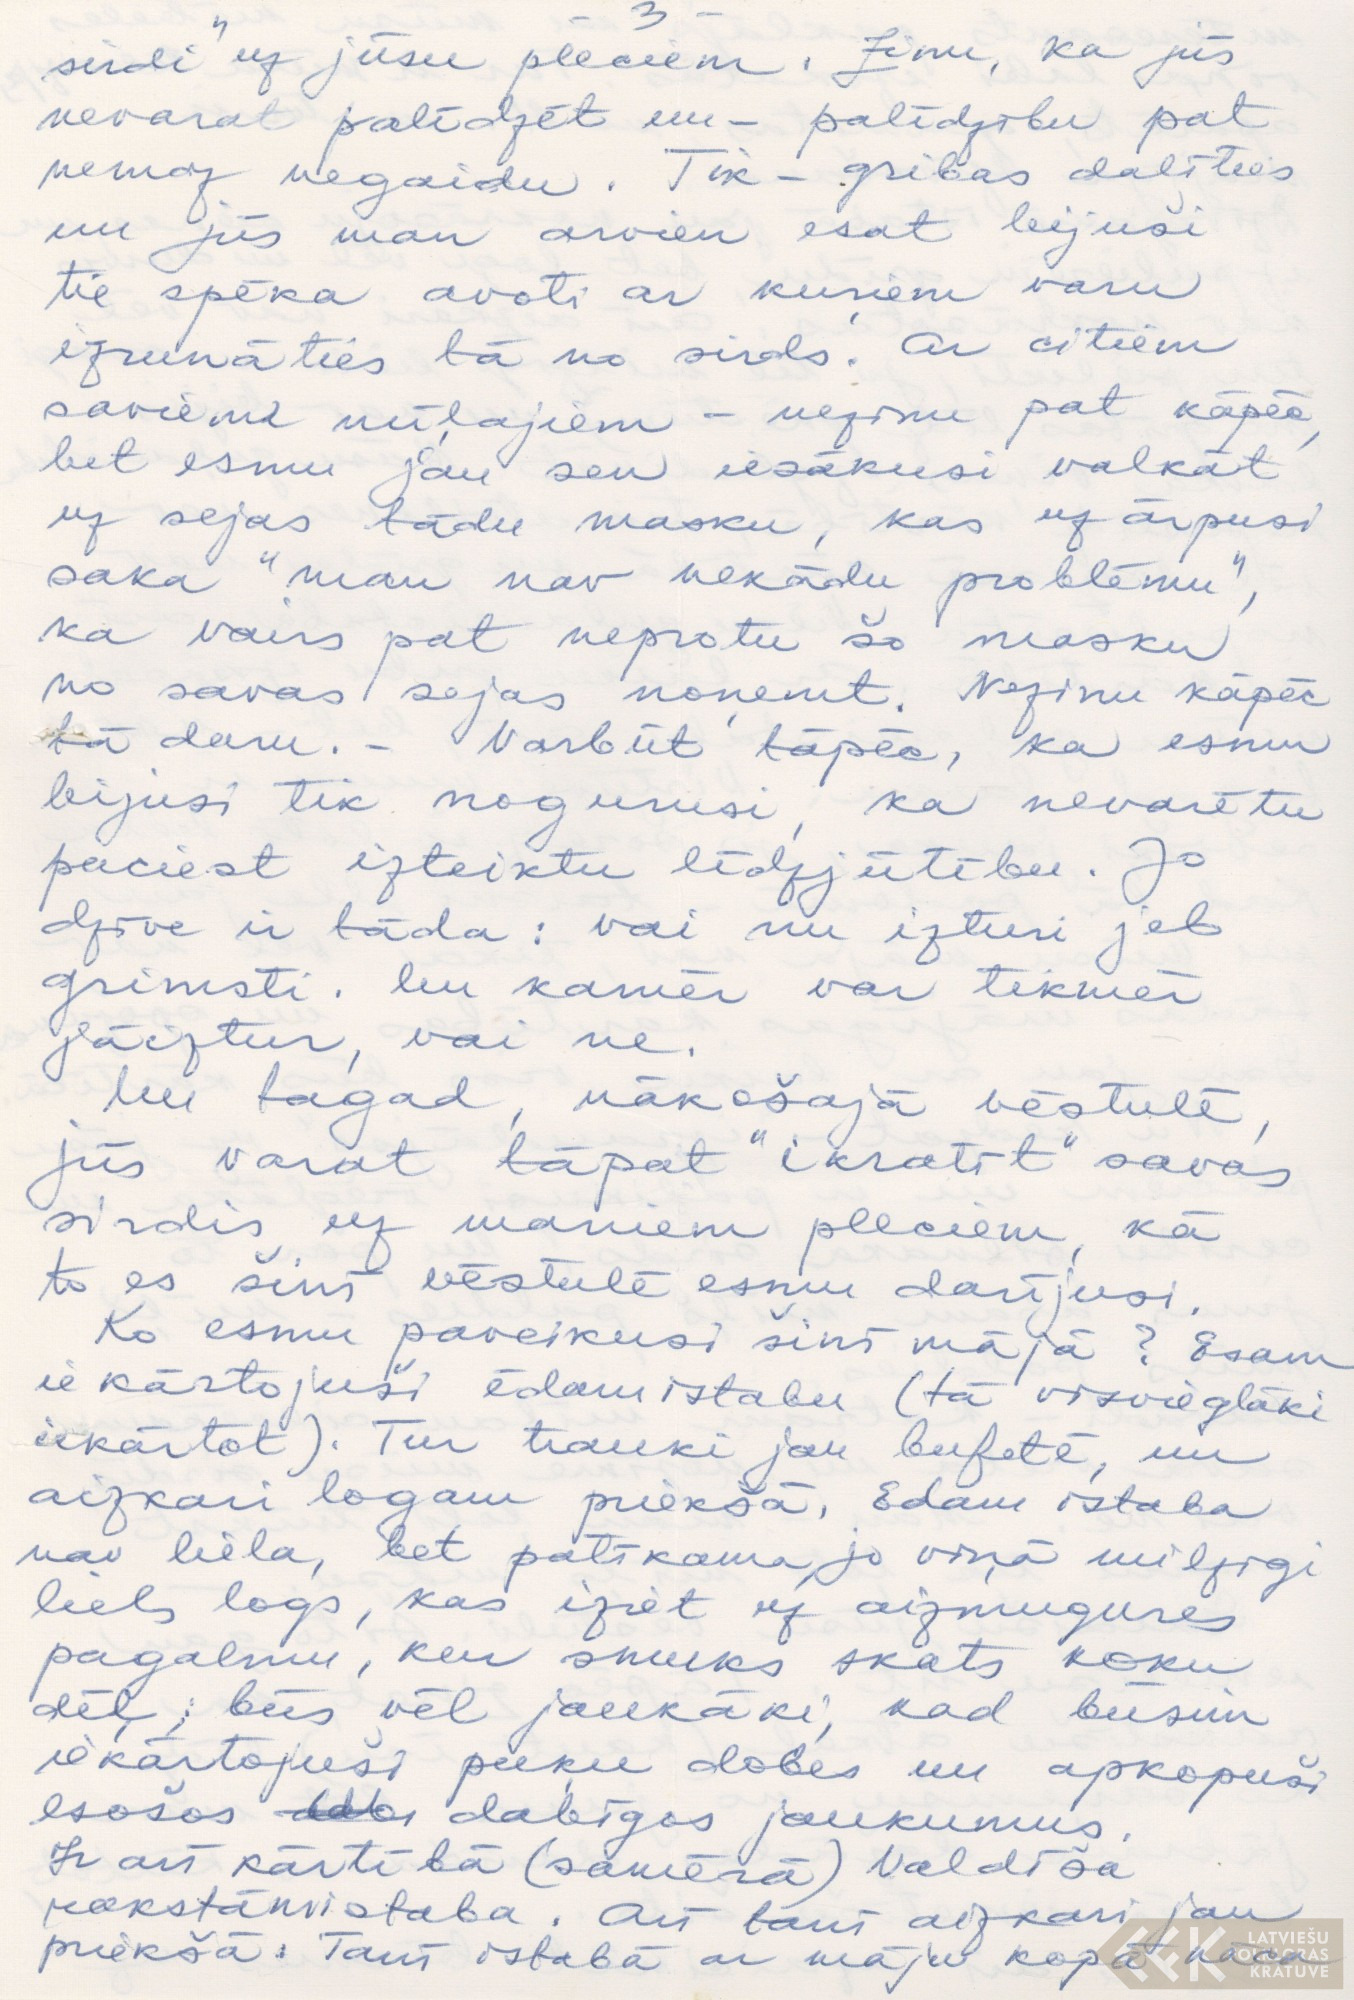 - 3 -
sirdi" uz jūsu pleciem. Zinu, ka jūs
nevarat palīdzēt un - palīdzību pat
nemaz negaidu. Tik - gribas dalīties
un jūs man arvien esat bijuši
tie spēka avoti ar kuŗiem varu
izrunāties tā no sirds. Ar citiem
saviem mīļajiem - nezinu pat kāpēc,
bet esmu jau sen iesākusi valkāt
uz sejas tādu masku, kas uz ārpusi
saka "man nav nekādu problēmu",
ka vairs pat neprotu šo masku
no savas sejas noņemt. Nezinu kāpēc
tā daru. - Varbūt tāpēc, ka esmu
bijusi tik nogurusi, ka nevarētu
paciest izteiktu līdzjūtību. Jo
dzīve ir tāda: vai nu izturi jeb
grimsti. Un kamēr var tikmēr
jāiztur, vai ne.
Un tagad, nākošajā vēstulē,
jūs varat tāpat "izkratīt" savas
sirdis uz maniem pleciem, kā
to es šinī vēstulē esmu darījusi.
Ko esmu paveikusi šinī mājā? Esam
iekārtojuši ēdamistabu (tā visvieglāki
iekārtot). Tur trauki jau bufetē, un
aizkari logam priekšā. Ēdamistaba
nav liela, bet patīkama, jo viņā milzīgi
liels logs, kas iziet uz aizmugures
pagalmu, kur smuks skats koku
dēļ; būs vēl jaukāki, kad būsim
iekārtojuši puķu dobes un apkopuši
esošos dabīgos jaukumus.
Ir arī kārtībā (samērā) Valdīša
rakstāmistaba. Arī tanī aizkari jau
priekšā. Tanī istabā ar māju kopā nāca
LATVIEŠU
DIASPORAS
KRATUVE